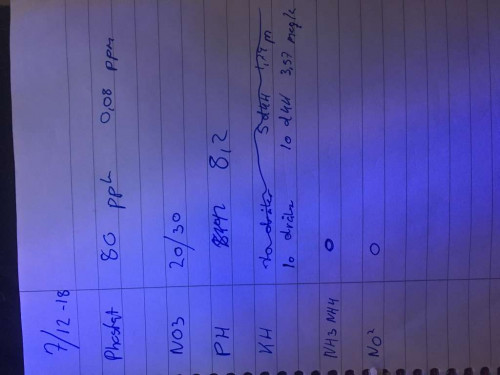 7/12 -18
Phosfat 80 ppb 0,08 ppm
NO3 20/30
PH 8,2
KH 5 dKH 1,79 m
10 dråbe 10 dKH 3,57 meq/L
NH3 NH4 0
NO² 0